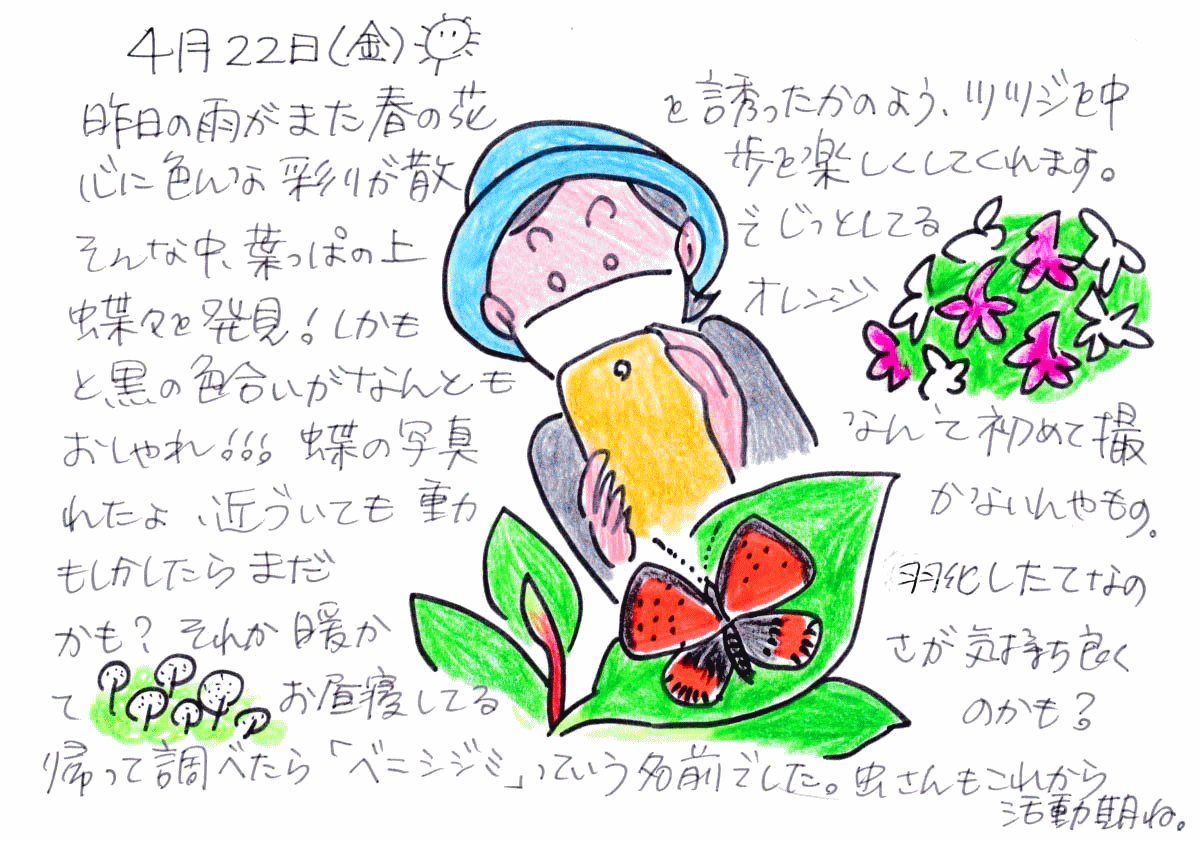 4月22日(金)
昨日の雨がまた春の花を誘ったかのよう、ツツジを中
心に色んな彩りが散歩を楽しくしてくれます。
そんな中、葉っぱの上でじっとしてる
蝶々を発見!しかもオレンジ
と黒の色合いがなんとも
おしゃれ!!! 蝶の写真なんて初めて撮
れたよ、近づいても動かないんやもの。
もしかしたらまだ羽化したてなの
かも?それか暖かさが気持ち良く
てお昼寝してるのかも?
帰って調べたら「ベニシジミ」っていう名前でした。虫さんもこれから
活動期ね。